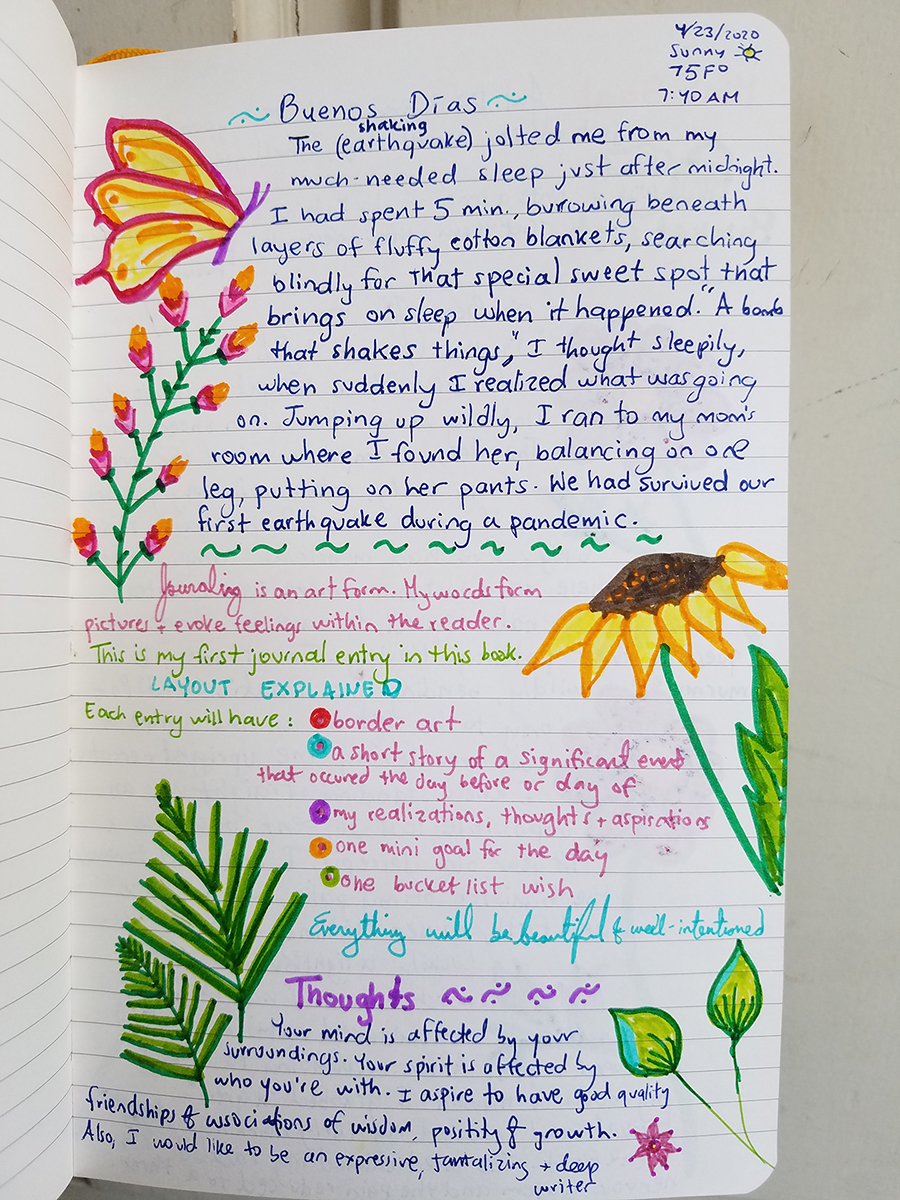 4/23/2020
Sunny
75F°
7:40 AM
~ Buenos Días ~
shaking
The (earthquake) jolted me from my
much-needed sleep just after midnight.
I had spent 5 min., burrowing beneath
layers of fluffy cotton blankets, searching
blindly for that special sweet spot that
brings on sleep when it happened. "A bomb
that shakes things," I thought sleepily,
when suddenly I realized what was going
on. Jumping up wildly, I ran to my mom's
room where I found her, balancing on one
leg, putting on her pants. We had survived our
first earthquake during a pandemic.
Journaling is an art form. My words form
pictures + evoke feelings within the reader.
This is my first journal entry in this book.
LAYOUT EXPLAINED
Each entry will have: border art
a short story of a significant event
that occured the day before or day of
my realizations, thoughts + aspirations
one mini goal for the day
one bucket list wish
Everything will be beautiful & well-intentioned
Thoughts
Your mind is affected by your
surroundings. Your spirit is affected by
who you're with. I aspire to have good quality
friendships & associations of wisdom, positity & growth.
Also, I would like to be an expressive, tantalizing + deep
writer